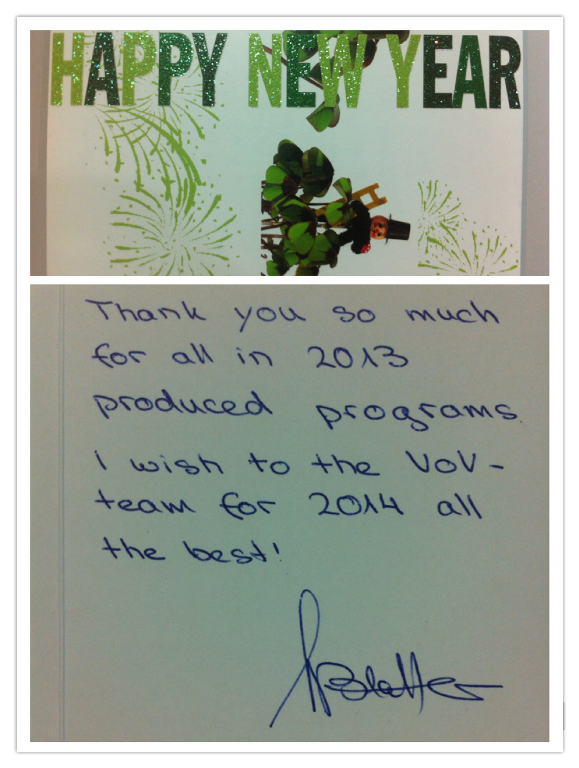 HAPPY NEW YEAR
Thank you so much
for all in 2013
produced programs.
I wish to the VoV-
team for 2014 all
the best!
Blatter